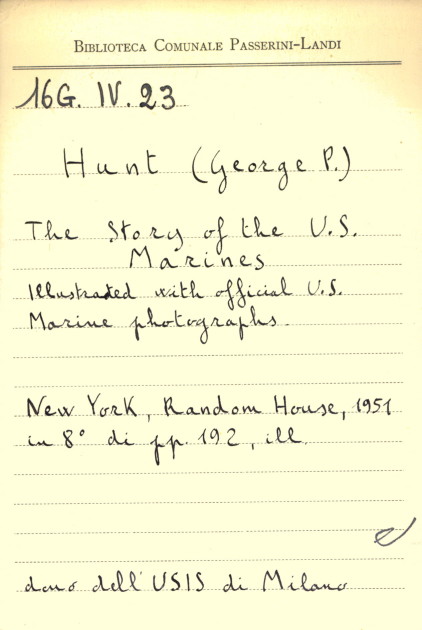 BIBLIOTECA COMUNALE PASSERINI-LANDI
16G. IV. 23
Hunt (George P.)
The Story of the U.S.
Marines
Illustrated with official U.S.
Marine photographs.
New York, Random House, 1951
in 8° di pp. 192, ill.
dono dell'USIS di Milano